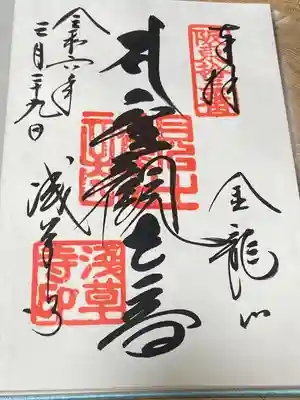 奉拝
坂東拾三番
金龍山
聖観世音
令和六年
二月二十九日
浅草寺
淺草寺印